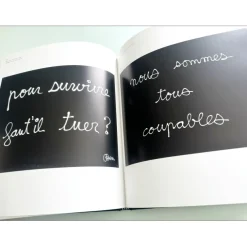 pour survivre
faut'il tuer ?
Ben
nous sommes
tous
coupables